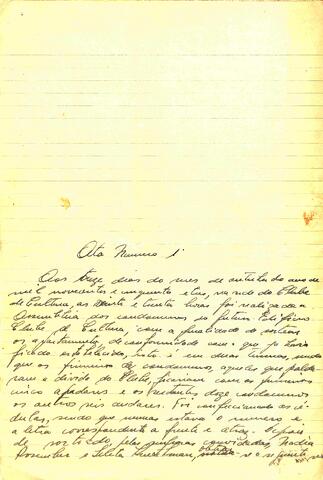 Ata Numero 1
Aos treze dias do mes de outubro do ano de
mil novecentos e cinquenta e tres, na sede do Clube
de Cultura, as vinte e trinta horas foi realizada a
Assembleia dos condominos do futuro Edificio
Clube de Cultura, com a finalidade do sorteio
os apartamentos, de conformidade com o que ja havia
ficado estabelecido, isto é em duas turmas, sendo
que os primeiros condominos, aqueles que salda-
ram a divida do Clube, ficariam com os primeiros
cinco andares e os restantes doze condominos
os outros seis andares. Foi confeccionado as cé-
dulas, sendo que numas estava o numero e
a letra correspondente a frente e atraz. Depois
de sorteado, pelas senhoras convidadas, Nadia
e o seguinte